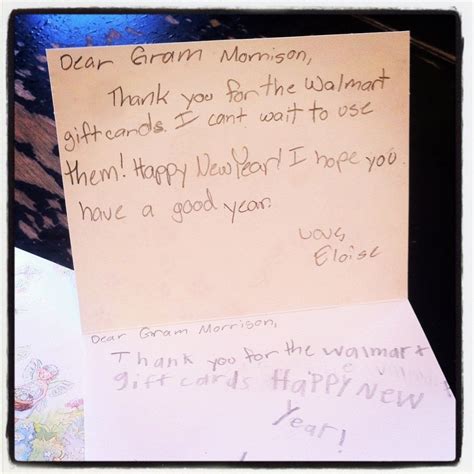 Dear Gram Morrison,
Thank you for the Walmart
gift cards. I cant wait to use
them! Happy New Year! I hope you
have a good year.
Love,
Eloise
Dear Gram Morrison,
Thank you for the walmart
gift cards HAPPY NEW
Year!